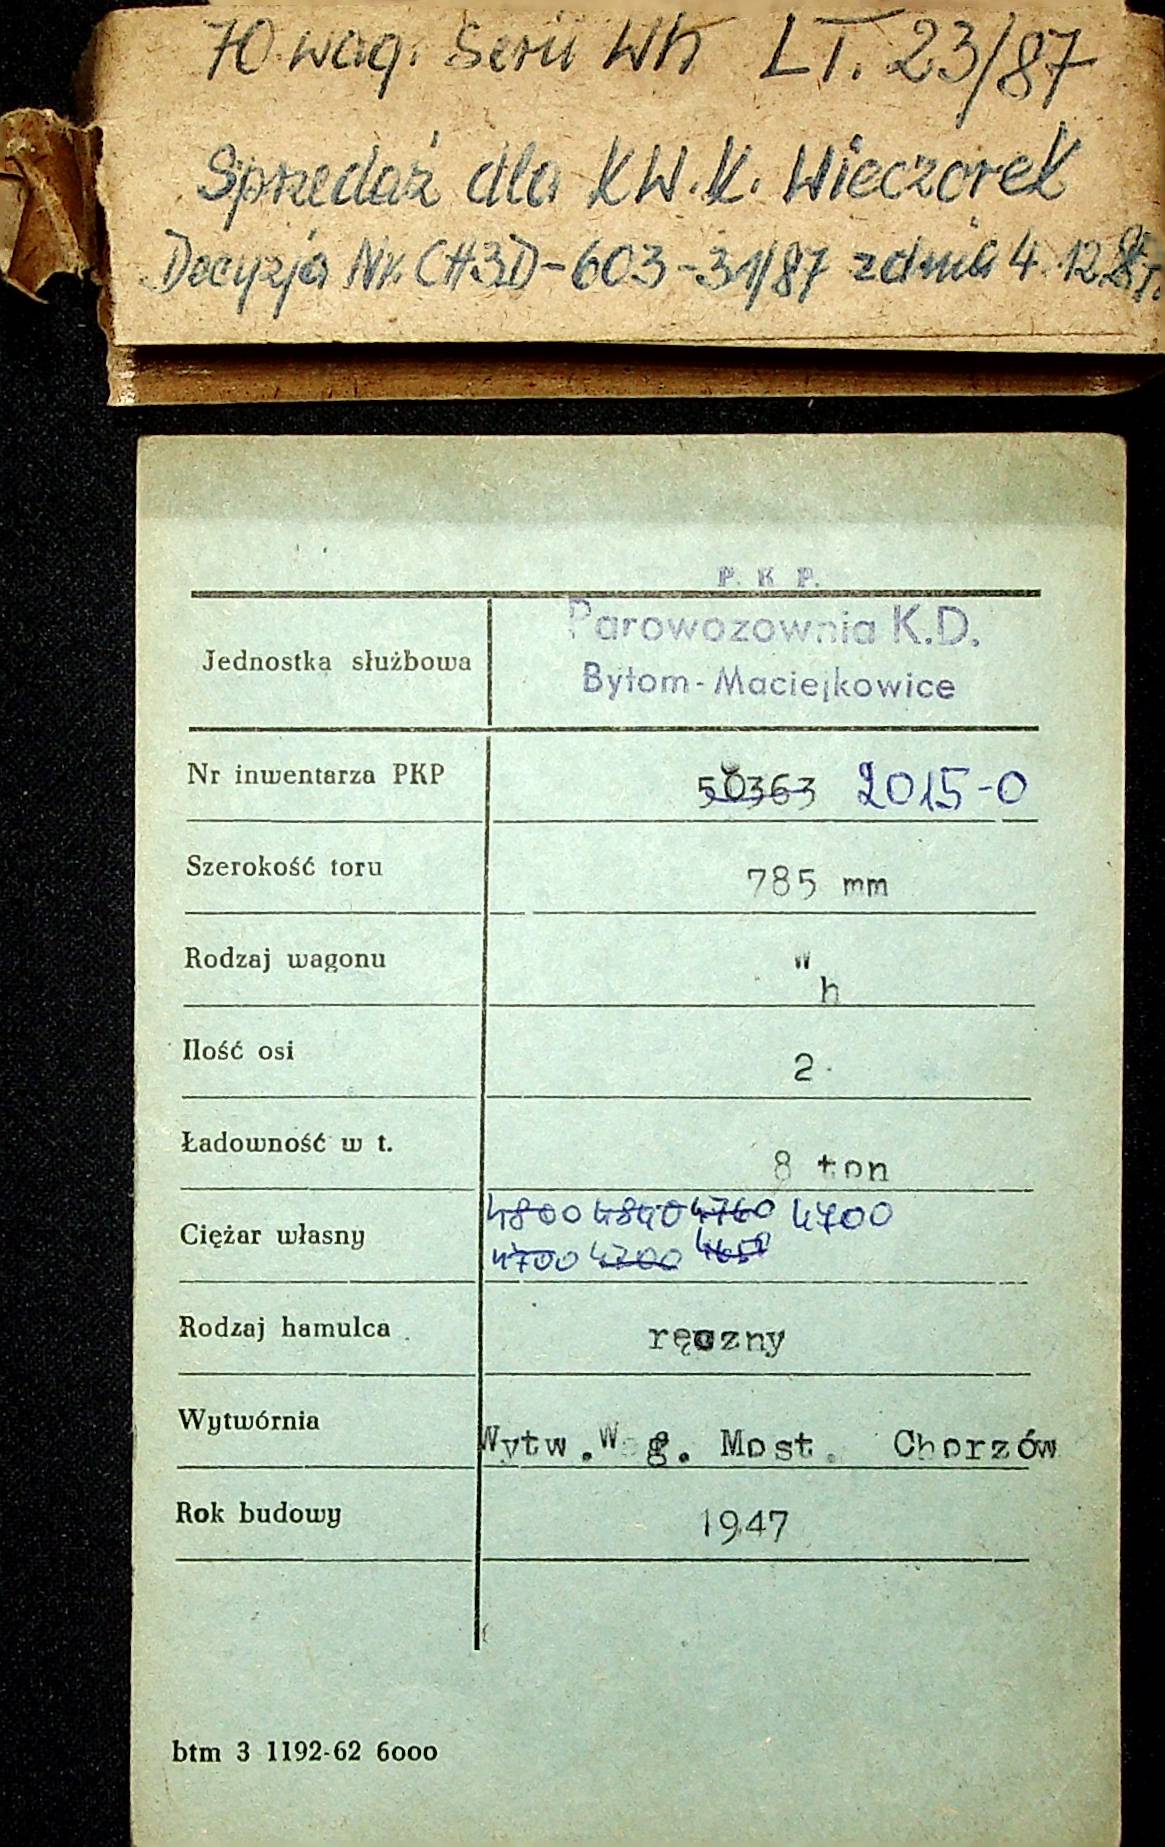 70 wag. Serii Wh LT. 23/87
Sprzedaż dla KW.K. Wieczorek
Decyzja Nr. CH3D-603-31/87 z dnia 4.12.87r.
P. K P.
Parowozownia K.D.
Bytom-Maciejkowice
Jednostka służbowa
Nr inwentarza PKP 50363 2015-0
Szerokość toru 785 mm
Rodzaj wagonu W
h
Ilość osi 2
Ładowność w t. 8 ton
Ciężar własny 4800 4840 4760 4700
4700 4700
Rodzaj hamulca ręczny
Wytwórnia Wytw.Wag. Most. Chorzów
Rok budowy 1947
btm 3 1192-62 6000